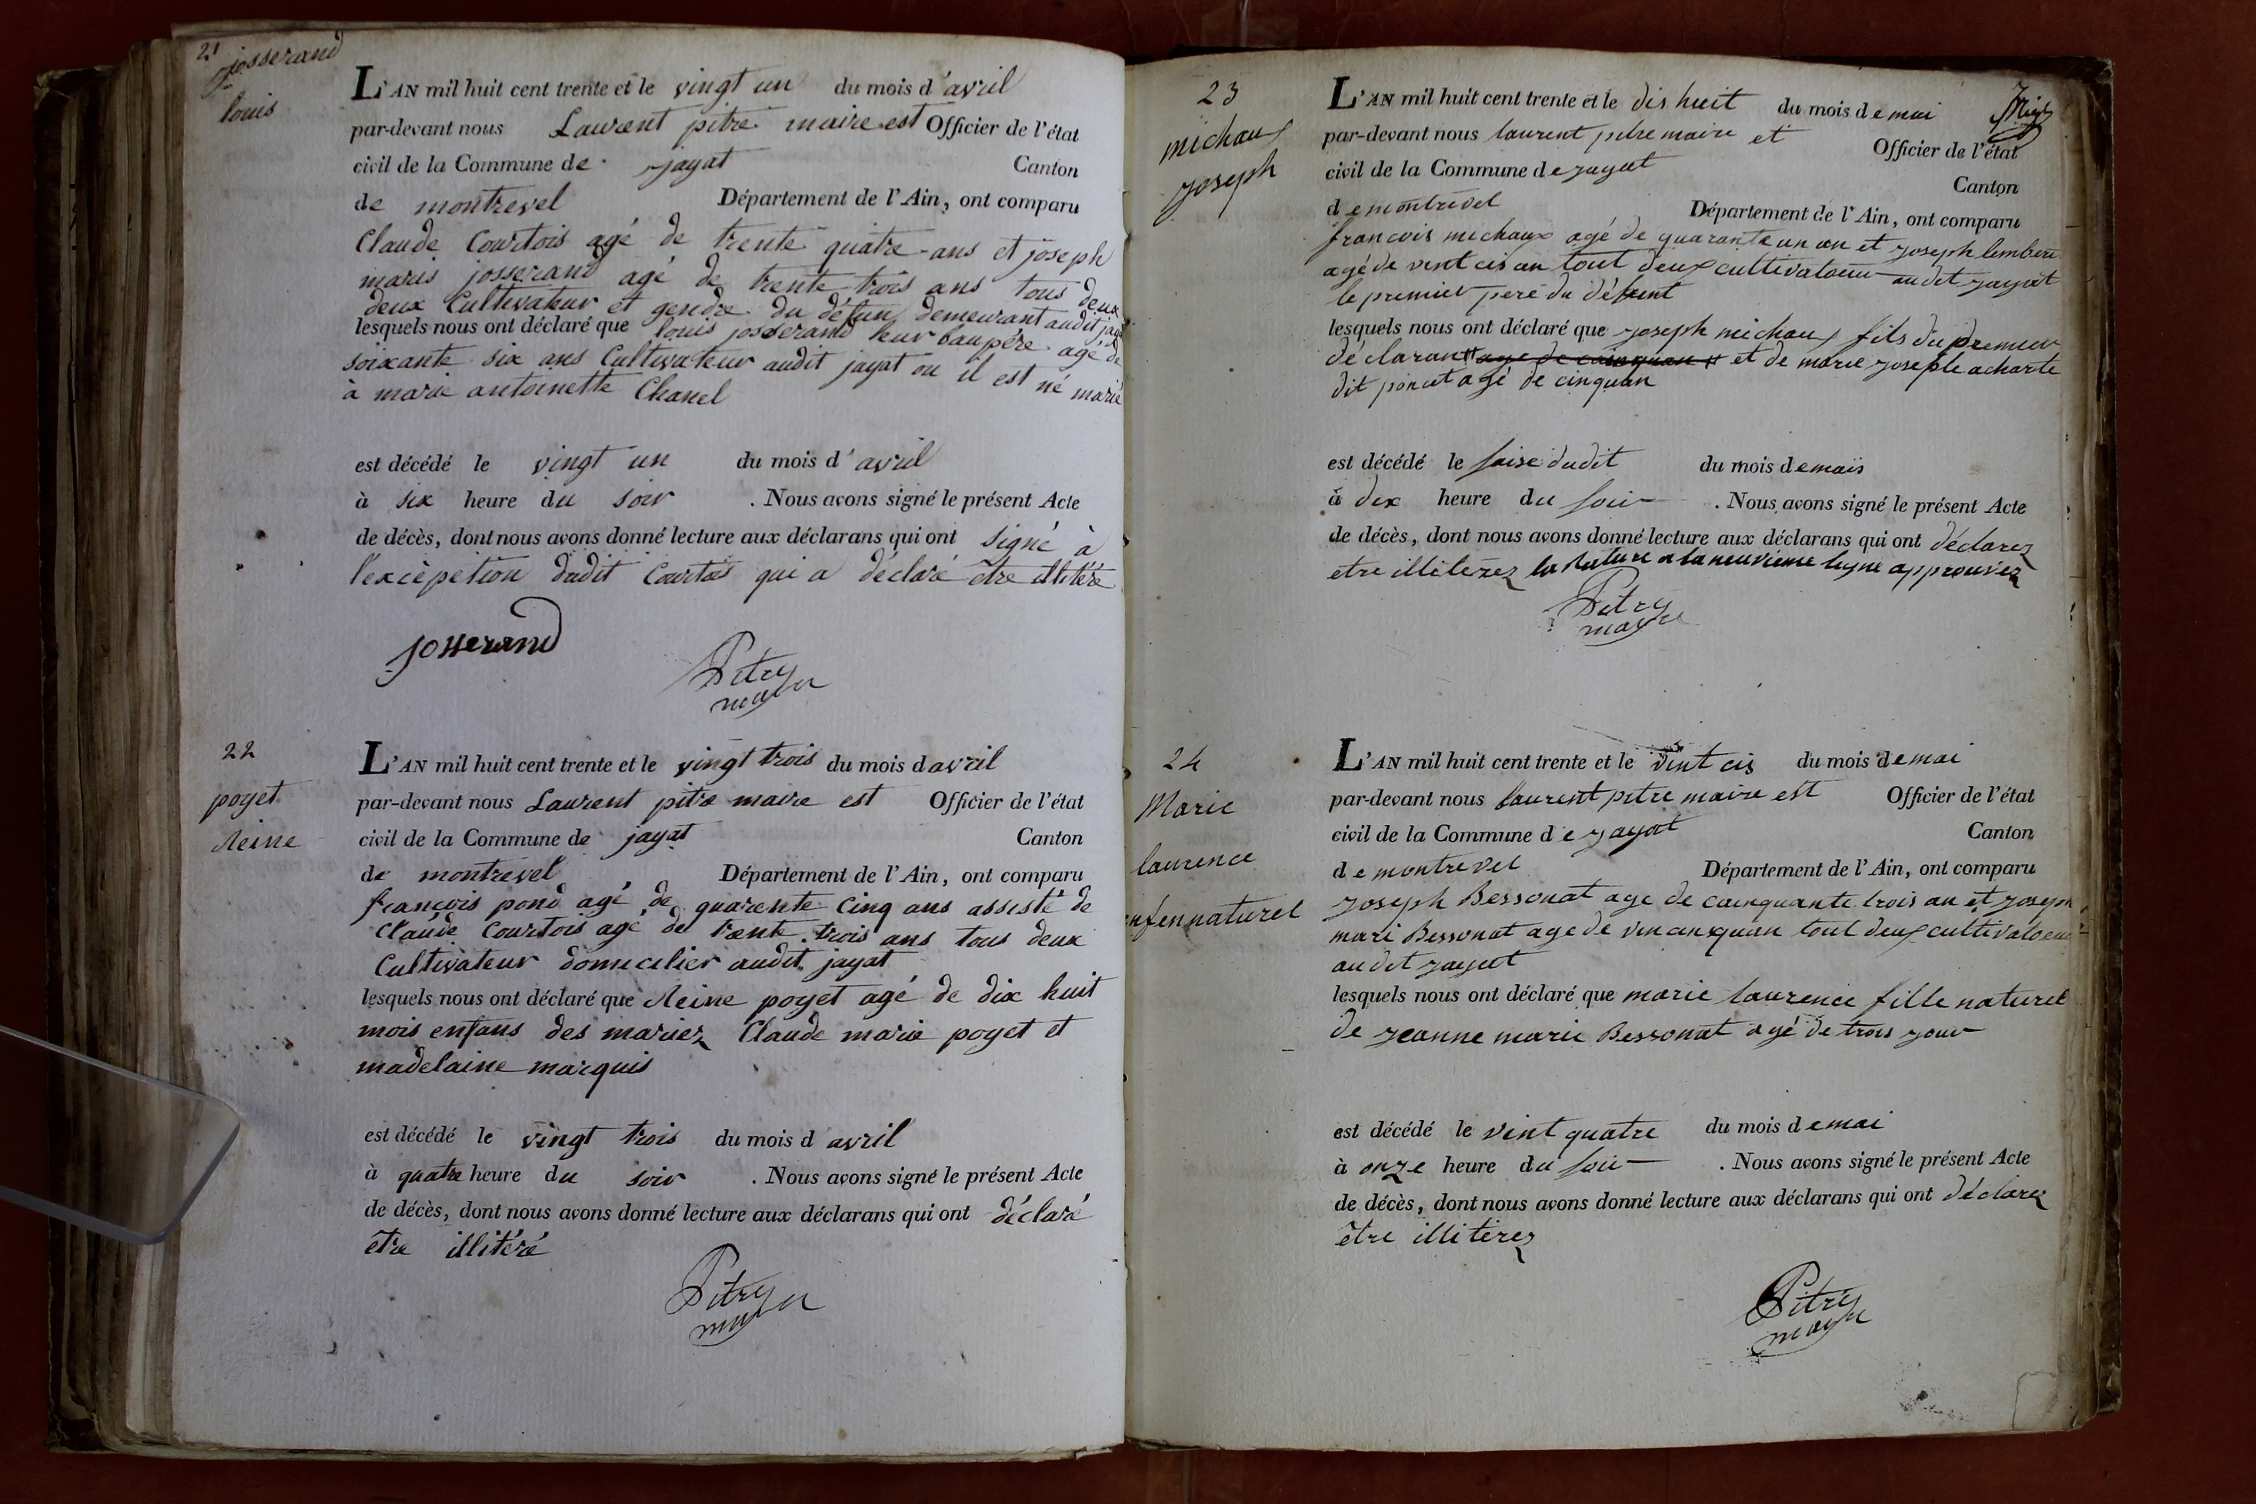 21
josserand
louis
L'AN mil huit cent trente et le vingt un du mois d'avril
par-devant nous Laurent pitre maire est Officier de l'état
civil de la Commune de jayat Canton
de montrevel Département de l'Ain, ont comparu
Claude Courtois agé de trente quatre ans et joseph
maris josserand agé de trente trois ans tous deux
deux Cultivateur et gendre du défun demeurant audit jayat
lesquels nous ont déclaré que louis josserand leur baupére agé de
soixante six ans Cultivateur audit jayat ou il est né marié
à marie antoinette Chanel
est décédé le vingt un du mois d'avril
à six heure du soir . Nous avons signé le présent Acte
de décès, dont nous avons donné lecture aux déclarans qui ont signé à
l'excèpetion dudit Courtois qui a déclaré être illitéré
josserand
Pitre
mayre
22
poyet
Reine
L'AN mil huit cent trente et le vingt trois du mois d avril
par-devant nous Laurent pitre maire est Officier de l'état
civil de la Commune de jayat Canton
de montrevel Département de l'Ain, ont comparu
françois pond agé de quarente cinq ans assisté de
Claude Courtois agé de trente trois ans tous deux
Cultivateur domicilier audit jayat
lesquels nous ont déclaré que Reine poyet agé de dix huit
mois enfans des mariez Claude marie poyet et
madelaine marquis
est décédé le vingt trois du mois d avril
à quatre heure du soir . Nous avons signé le présent Acte
de décès, dont nous avons donné lecture aux déclarans qui ont déclaré
être illitéré
Pitre
mayre
23
michaux
joseph
L'AN mil huit cent trente et le dis huit du mois de mai
par-devant nous laurent pitre maire et Officier de l'état
civil de la Commune de jayat Canton
de montrevel Département de l'Ain, ont comparu
francois michaux agé de quarante un an et joseph
agé de vint cis an tout deux cultivateur au dit jayat
le premier pere du défunt
lesquels nous ont déclaré que joseph michaux fils du premier
declarant age de cainquan et de marie joseple acharte
dit poncet agé de cinquan
est décédé le saise dudit du mois de mais
à dix heure du soir . Nous avons signé le présent Acte
de décès, dont nous avons donné lecture aux déclarans qui ont déclarez
etre illiterez la rature a la neuvieme ligne approuvez
Pitre
mayre
24
Marie
laurence
enfennaturel
L'AN mil huit cent trente et le vint cis du mois de mai
par-devant nous laurent pitre maire est Officier de l'état
civil de la Commune de jayat Canton
de montrevel Département de l'Ain, ont comparu
joseph Bessonat age de cainquante trois an et joseph
mari Bessonat age de vin cinquan tout deux cultivateur
au dit jayat
lesquels nous ont déclaré que marie laurence fille naturel
de jeanne marie Bessonat agé de trois jour
est décédé le vint quatre du mois de mai
à onze heure du soir . Nous avons signé le présent Acte
de décès, dont nous avons donné lecture aux déclarans qui ont déclarez
être illiterez
Pitre
mayre